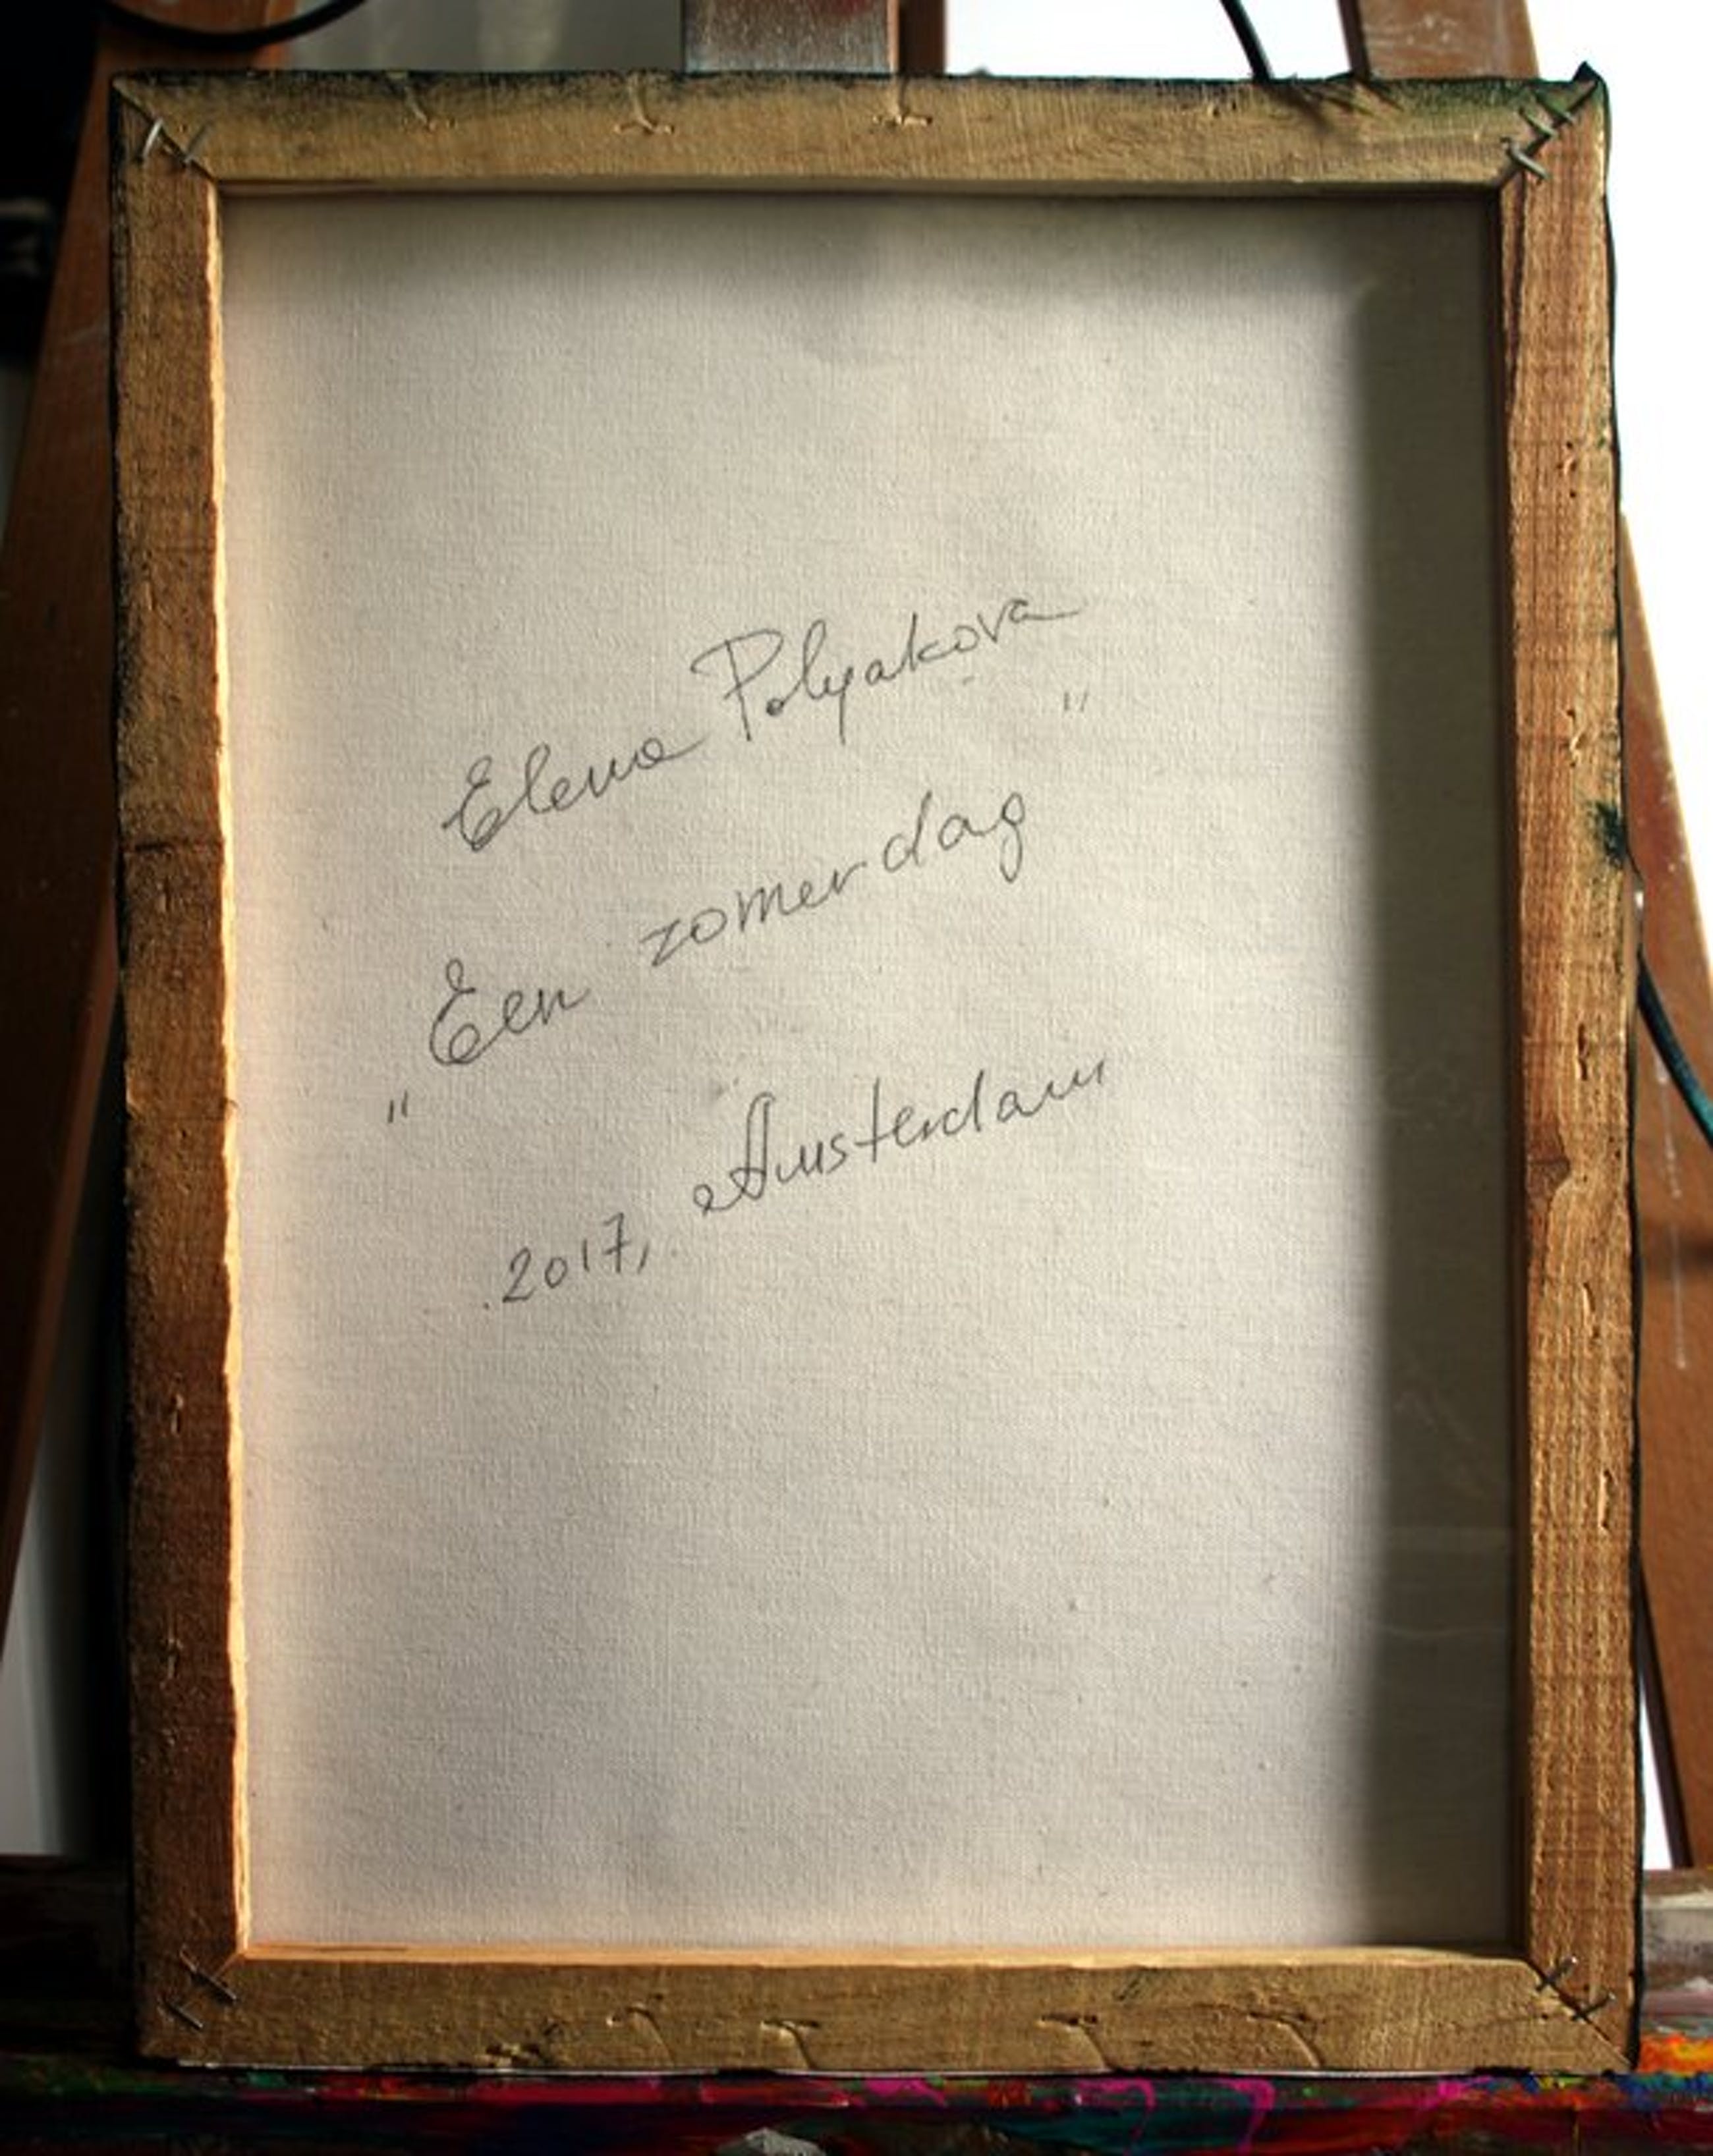 Elena Polyakova
"Een zomerdag"
2017, Amsterdam